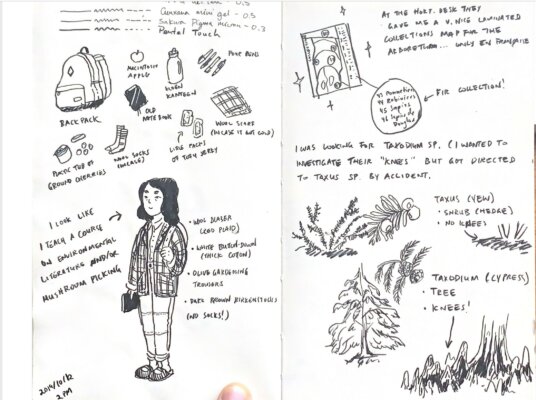 mini gel - 0.5
Sakura Pigma micron - 0.3
Pentel Touch
MACINTOSH
APPLE
WATER
CANTEEN
PINE
BACKPACK
OLD
NOTEBOOK
WOOL SCARF
(IN CASE IT GETS COLD)
PLASTIC TUB OF
GROUND CHERRIES
WOOL SOCKS
LITTLE PACKS
OF TURKEY JERKY
I LOOK LIKE
I TEACH A COURSE
ON ENVIRONMENTAL
LITERATURE AND/OR
MUSHROOM PICKING
• WOOL BLAZER
(RED PLAID)
• WHITE BUTTON-DOWN
(THICK COTTON)
• OLIVE GARDENING
TROUSERS
• DARK BROWN BIRKENSTOCKS
(NO SOCKS!)
2 PM
AT THE HORT. DESK THEY
GAVE ME A V. NICE LAMINATED
COLLECTIONS MAP FOR THE
ARBORETUM... ONLY EN FRANÇAIS
FIR COLLECTION!
I WAS LOOKING FOR TAXODIUM SP. (I WANTED TO
INVESTIGATE THEIR "KNEES" BUT GOT DIRECTED
TO TAXUS SP. BY ACCIDENT.
TAXUS (YEW)
• SHRUB (HEDGE)
• NO KNEES
TAXODIUM (CYPRESS)
• TREE
• KNEES!